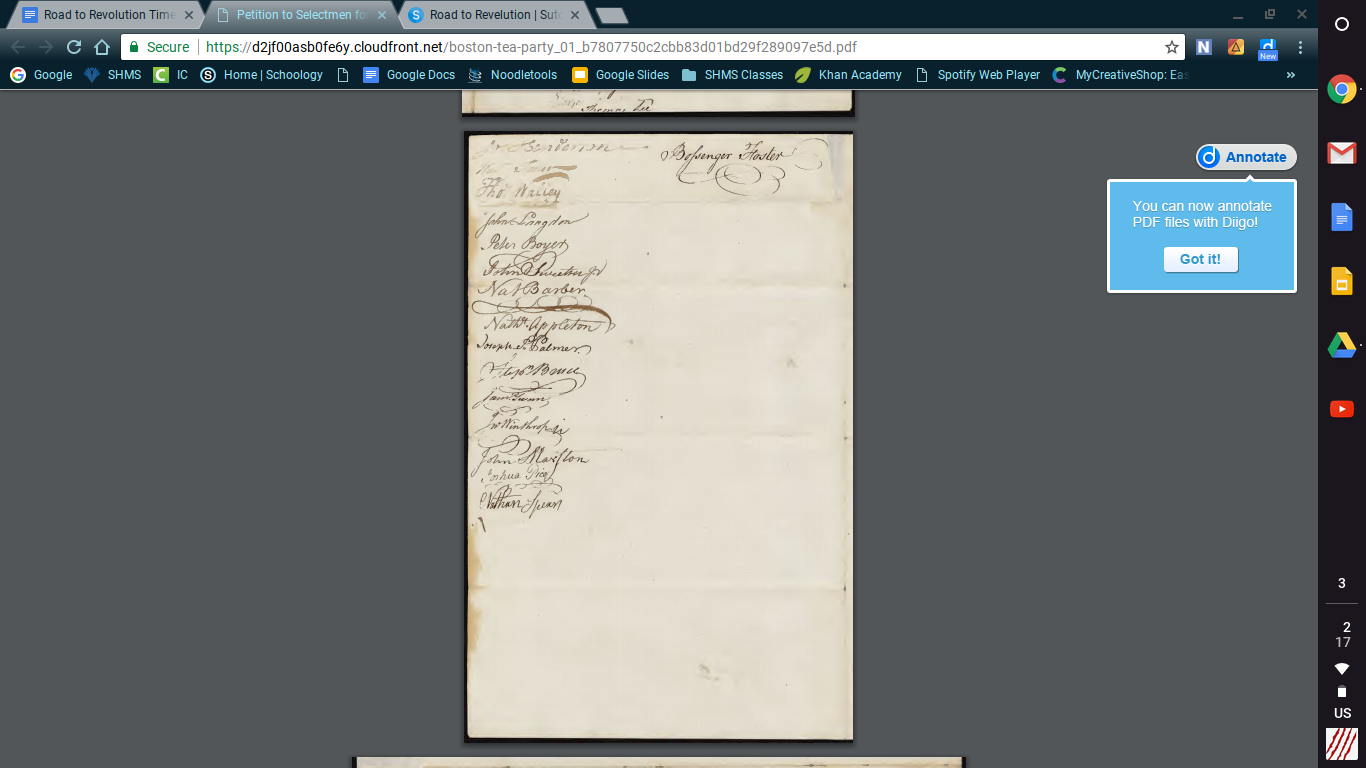 Road to Revolution Time
Petition to Selectmen fo
Road to Revelution | Suto
Secure
https://d2jf00asb0fe6y.cloudfront.net/boston-tea-party_01_b7807750c2cbb83d01bd29f289097e5d.pdf
Google
SHMS
IC
Home | Schoology
Google Docs
Noodletools
Google Slides
SHMS Classes
Khan Academy
Spotify Web Player
MyCreativeShop: Eas
»
N
d
New
Thomas Lee
Bossenger Foster
John Langdon
Peter Boyer
Nat Barber
Nathl. Appleton
Joseph P. Palmer
Jno Winthrop Jr
John Marston
Joshua Pico
Nathan Spear
d Annotate
You can now annotate
PDF files with Diigo!
Got it!
3
2
17
US